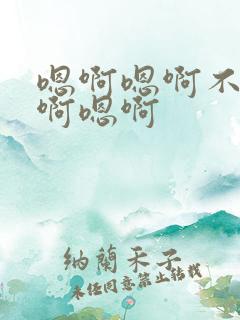 嗯啊嗯啊不
啊嗯啊
纳蘭禾子
未经同意禁止转载